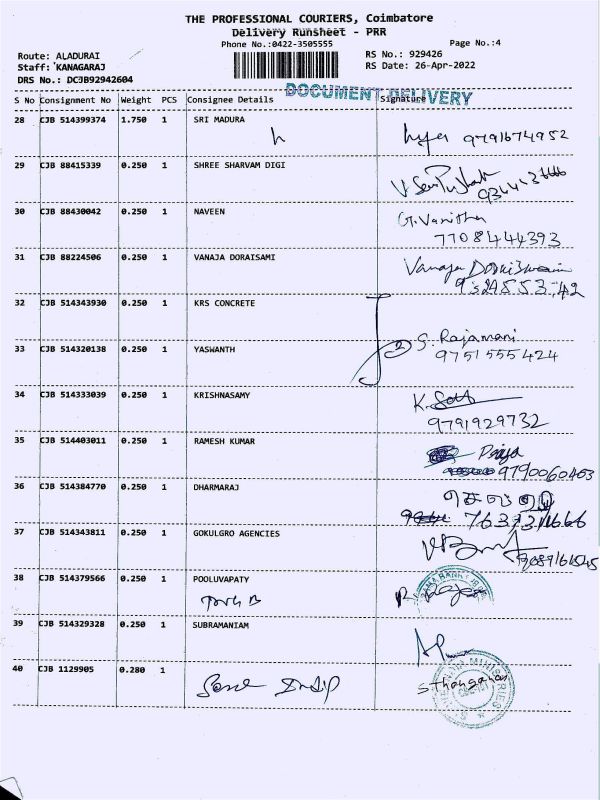 THE PROFESSIONAL COURIERS, Coimbatore
Delivery Runsheet - PRR
Phone No.:0422-3505555
Page No.:4
Route: ALADURAI
Staff: KANAGARAJ
DRS No.: DCJB92942604
RS No.: 929426
RS Date: 26-Apr-2022
DOCUMENT DELIVERY
S No Consignment No Weight PCS Consignee Details Signature
28 CJB 514399374 1.750 1 SRI MADURA
9791674952
29 CJB 88415339 0.250 1 SHREE SHARVAM DIGI
30 CJB 88430042 0.250 1 NAVEEN G.Vanitha
7708444393
31 CJB 88224506 0.250 1 VANAJA DORAISAMI Vanaja Doraiswami
32 CJB 514343930 0.250 1 KRS CONCRETE
33 CJB 514320138 0.250 1 YASWANTH S. Rajamani
9751555424
34 CJB 514333039 0.250 1 KRISHNASAMY
9791929732
35 CJB 514403011 0.250 1 RAMESH KUMAR Priya
9790060403
36 CJB 514384770 0.250 1 DHARMARAJ
37 CJB 514343811 0.250 1 GOKULGRO AGENCIES
38 CJB 514379566 0.250 1 POOLUVAPATY
39 CJB 514329328 0.250 1 SUBRAMANIAM
40 CJB 1129905 0.280 1